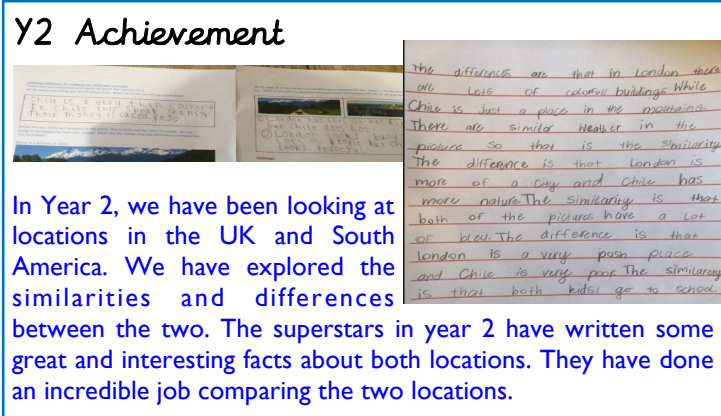 Y2 Achievement
Chile is a very thin country
In Chile they speak spanish
Their money is called peso
but chile does not
London look busy
Lots of people but ch
looks peaceful
The differences are that in London there
are Lots of colorfoll buildings While
Chile is Just a place in the mountains.
There are similar Weather in the
picture so that is the similarity
The difference is that London is
more of a city and Chile has
more nature. The similarity is that
both of the pictures have a Lot
of bleu. The difference is that
london is a very posh place
and Chile is very poor. The similarety
is that both kids go to school.
In Year 2, we have been looking at
locations in the UK and South
America. We have explored the
similarities and differences
between the two. The superstars in year 2 have written some
great and interesting facts about both locations. They have done
an incredible job comparing the two locations.